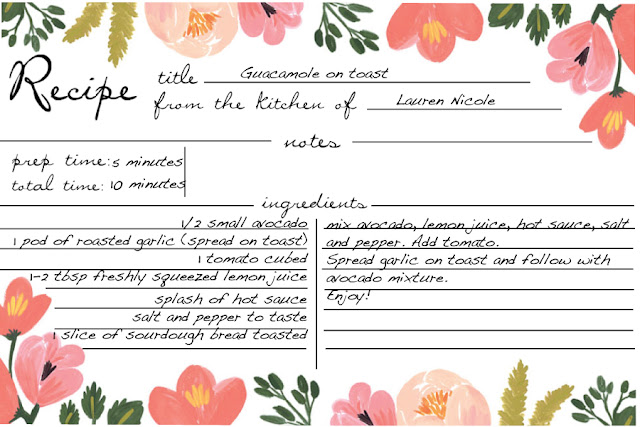 Recipe
title Guacamole on toast
from the kitchen of Lauren Nicole
notes
prep time: 5 minutes
total time: 10 minutes
ingredients
1/2 small avocado
1 pod of roasted garlic (spread on toast)
1 tomato cubed
1-2 tbsp freshly squeezed lemon juice
splash of hot sauce
salt and pepper to taste
1 slice of sourdough bread toasted
mix avocado, lemon juice, hot sauce, salt
and pepper. Add tomato.
Spread garlic on toast and follow with
avocado mixture.
Enjoy!